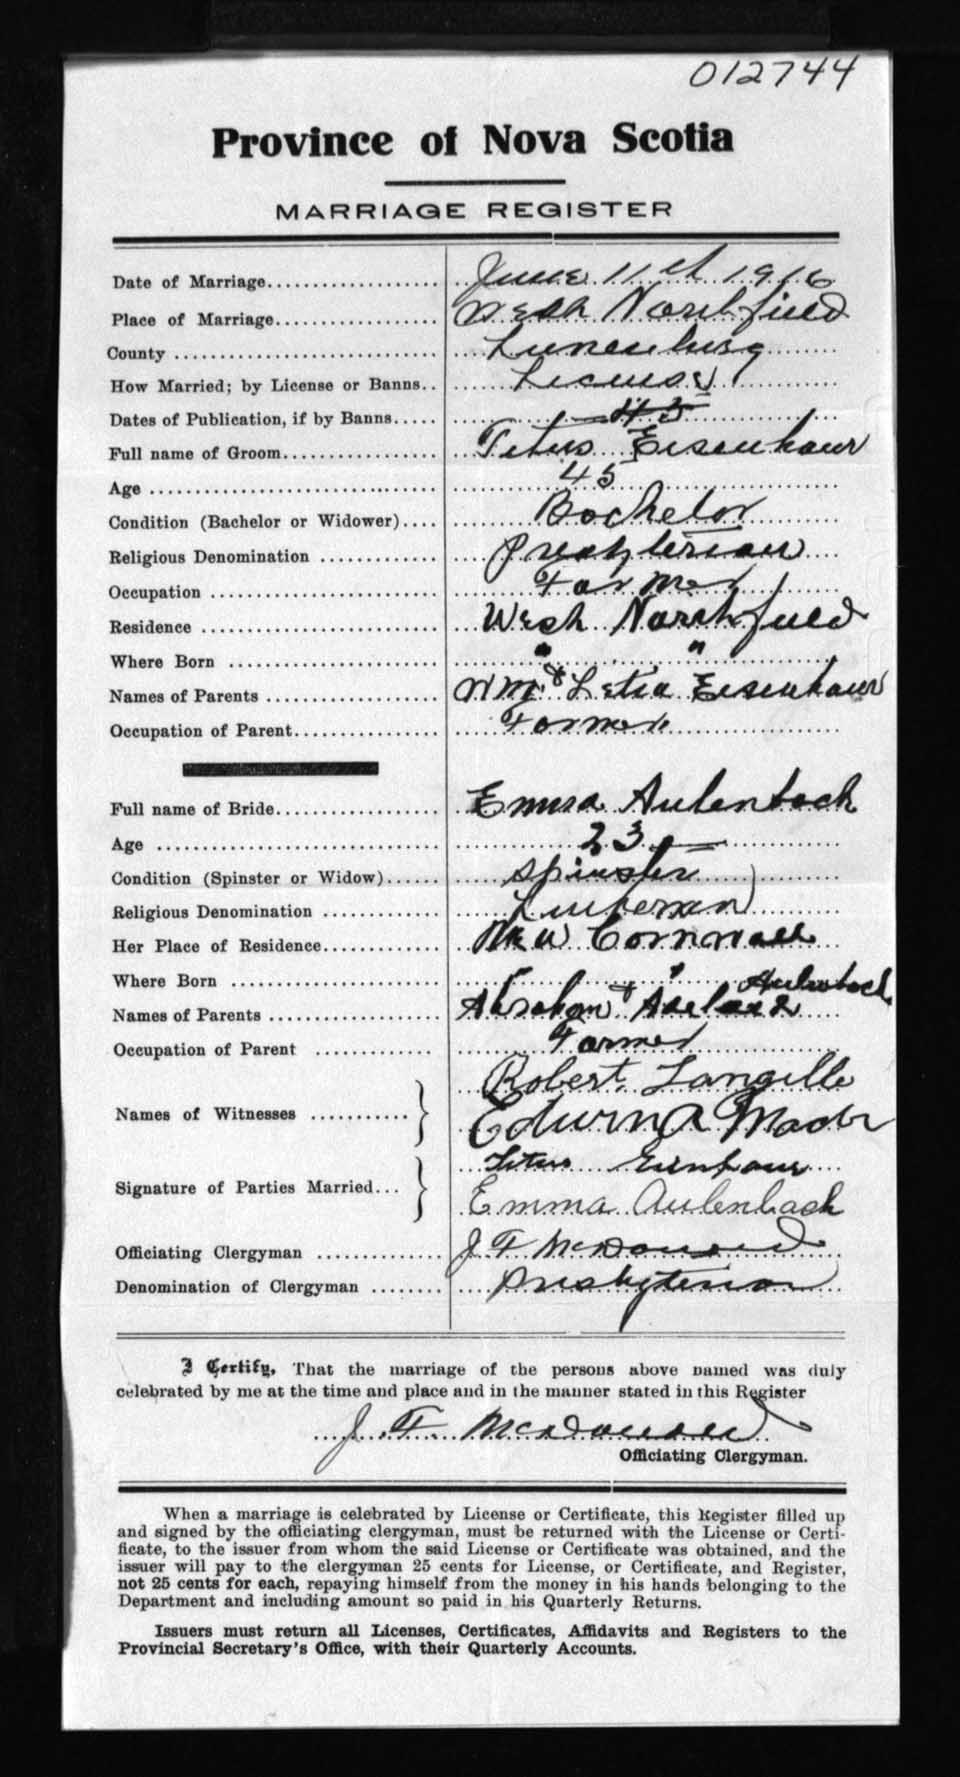 012744
Province of Nova Scotia
MARRIAGE REGISTER
Date of Marriage.................... June 11th 1916
Place of Marriage................... West Northfield
County ............................ Lunenburg
How Married; by License or Banns.. License
Dates of Publication, if by Banns..... 45
Full name of Groom.................. Titus Eisenhaur
Age ............................... 45
Condition (Bachelor or Widower).... Bachelor
Religious Denomination ............. Presbyterian
Occupation ........................ Farmer
Residence ......................... West Northfield
Where Born ....................... " "
Names of Parents ................... Wm & Letia Eisenhaur
Occupation of Parent................ Farmer
Full name of Bride.................. Emma Aulenback
Age ............................... 23
Condition (Spinster or Widow)...... Spinster
Religious Denomination .............. Lutheran
Her Place of Residence.............. New Cornwall
Where Born ....................... "
Aulenback
Names of Parents ................... Abraham &
Occupation of Parent .............. Farmer
Robert Langille
Names of Witnesses ...........
Edwina Mader
Titus Eisenhaur
Signature of Parties Married...
Emma Aulenback
Officiating Clergyman .............. J F McDonald
Denomination of Clergyman ........ Presbyterian
I Certify, That the marriage of the persons above named was duly
celebrated by me at the time and place and in the manner stated in this Register
J. F. McDonald
Officiating Clergyman.
When a marriage is celebrated by License or Certificate, this Register filled up
and signed by the officiating clergyman, must be returned with the License or Certi-
ficate, to the issuer from whom the said License or Certificate was obtained, and the
issuer will pay to the clergyman 25 cents for License, or Certificate, and Register,
not 25 cents for each, repaying himself from the money in his hands belonging to the
Department and including amount so paid in his Quarterly Returns.
Issuers must return all Licenses, Certificates, Affidavits and Registers to the
Provincial Secretary's Office, with their Quarterly Accounts.